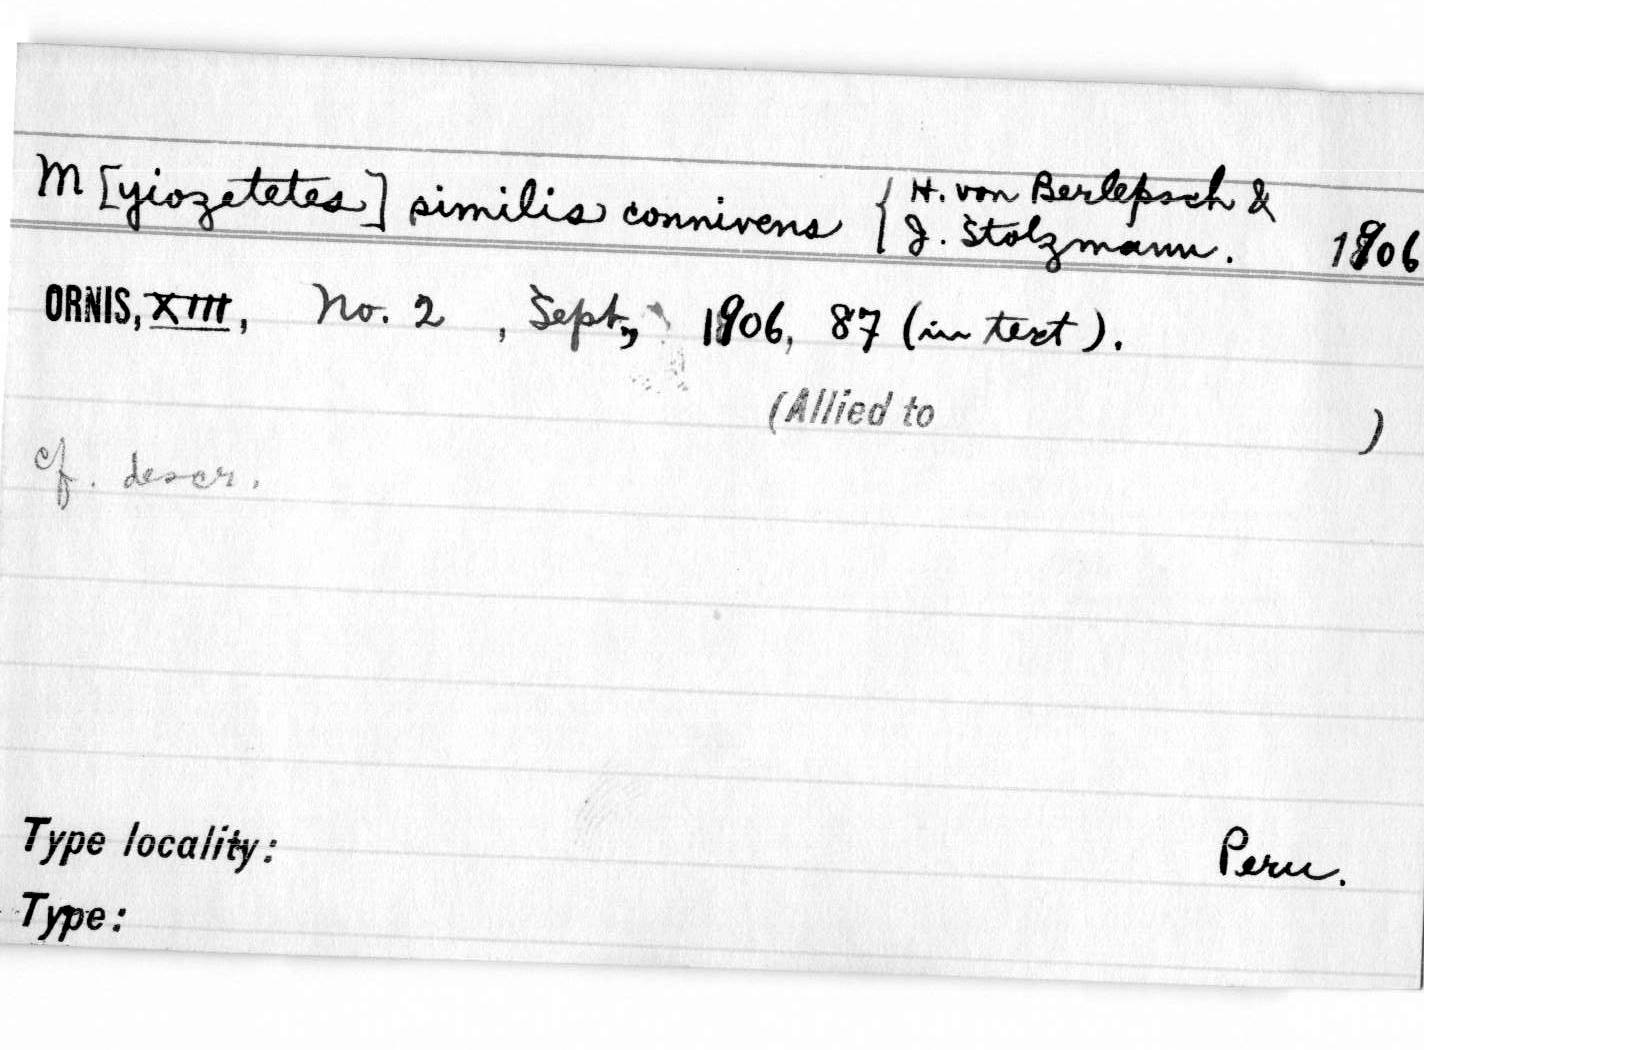 M[yiozetetes] similis connivens { H. von Berlepsch &
J. Stolzmann. 1906
ORNIS, XIII, No. 2, Sept., 1906, 87 (in text).
(Allied to )
cf. descr.
Type locality: Peru.
Type: